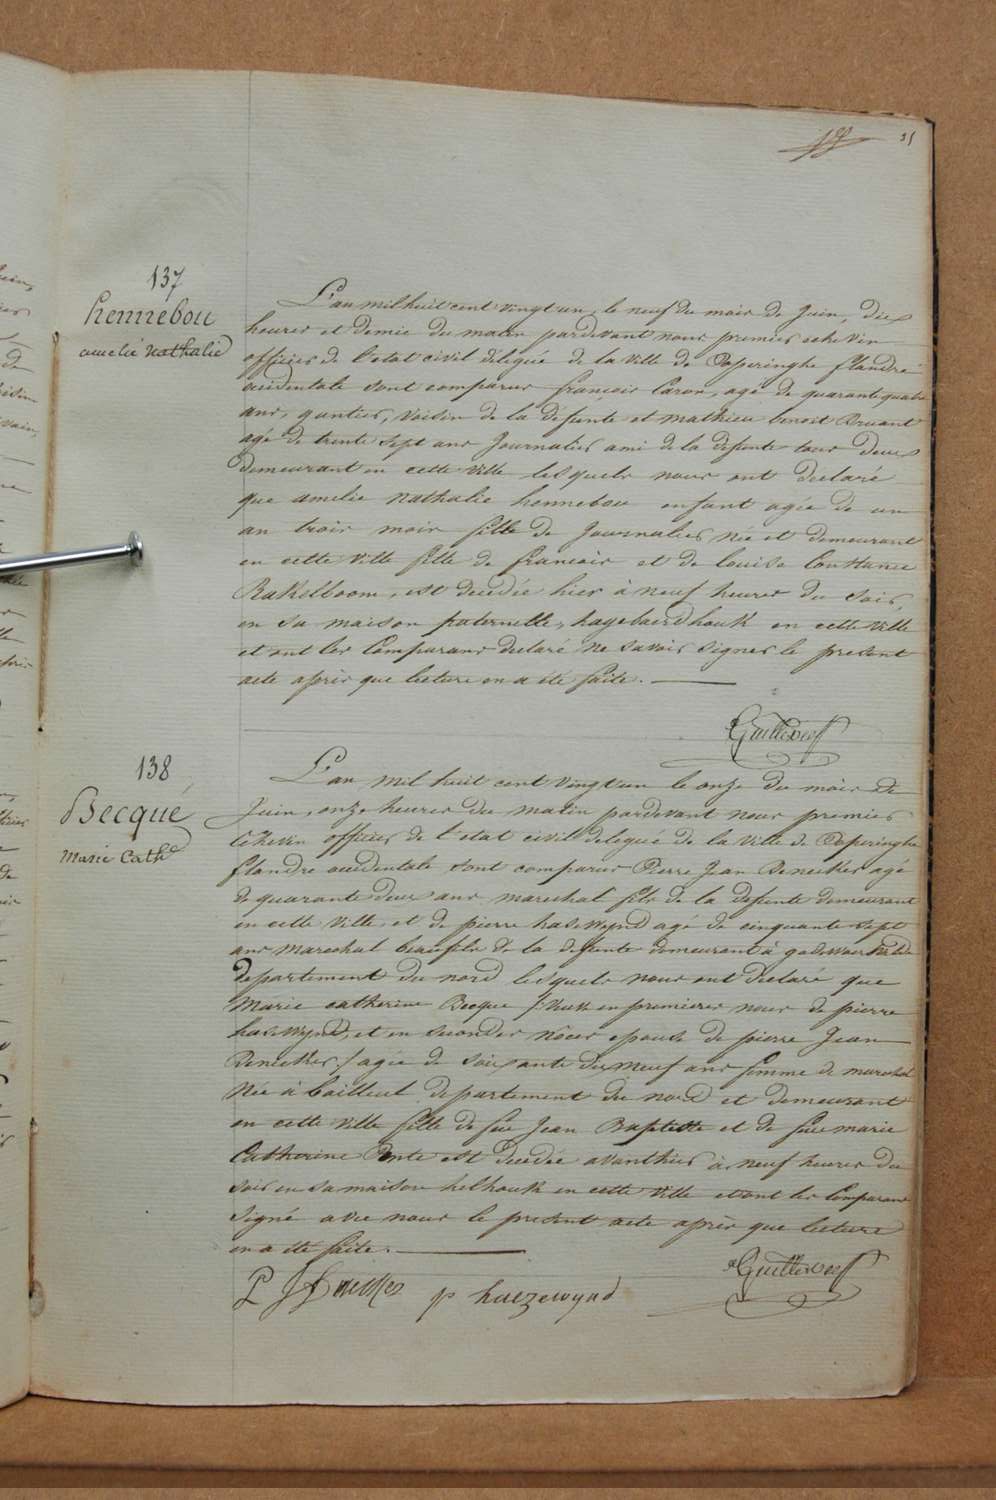 31
137
hennebou
amelie nathalie
L'an mil huit cent vingt un, le neuf du mois de Juin, dix
heures et demie du matin pardevant nous premier echevin
officier de l'etat civil délegué de la ville de Poperinghe flandre
occidentale sont comparus françois Caron, agé de quarante quatre
ans, gantier, voisin de la defunte et mathieu benoit Bruant
agé de trente sept ans Journalier ami de la defunte tous deux
demeurant en cette ville lesquels nous ont declaré
que amelie nathalie hennebou enfant agée de un
an trois mois fille de Journalier née et demeurant
en cette ville fille de francois et de louise Constance
Rakelboom, est decedée hier à neuf heures du soir,
en sa maison paternelle, hagebaerdhouk en cette ville
et ont les Comparans declaré ne savoir signer le present
acte après que lecture en a été faite.
138
Becqué
Marie Cath
L'an mil huit cent vingt un le onze du mois de
Juin, onze heures du matin pardevant nous premier
Echevin officier de l'etat civil delegué de la ville de Poperinghe
flandre occidentale sont comparus Pierre Jean Benecker agé
de quarante deux ans marechal fils de la defunte demeurant
en cette ville, et de pierre hasewynd agé de cinquante sept
ans Marechal beaufils de la defunte demeurant à
departement du nord lesquels nous ont declaré que
Marie catherine Becque /: veuve en premieres noces de pierre
hasewynd, et en secondes nôces epouse de pierre Jean
Benecker :/ agée de soixante dix neuf ans femme de marechal
Née à bailleul departement du nord et demeurant
en cette ville fille de feu Jean Baptiste et de feue marie
Catherine est decedée avanthier à neuf heures du
soir en sa maison helhouk en cette ville et ont les Comparans
signé avec nous le present acte après que lecture
en a été faite.
P J Benecker p haezewynd